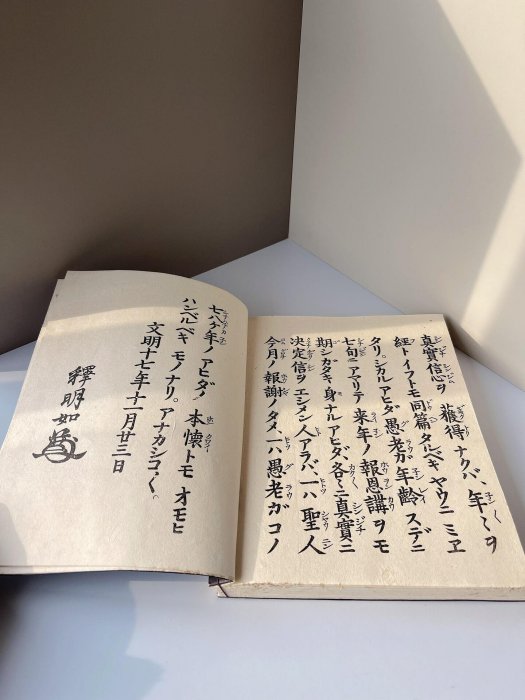 真實信心ヲ 獲得 ナクバ、年〱ヲ
經トイフトモ 同篇 タルベキ ヤウニ ミエ
タリ。シカルアヒダ 愚老ガ 年齡 スデニ
七旬ニ アマリテ 来年ノ 報恩講ヲモ
期シカタキ 身ナルアヒダ、各〱ニ 真實ニ
決定信ヲ エシメン 人アラバ、一ハ 聖人
今月ノ 報謝ノ タメ、一ハ 愚老ガ コノ
七八ケ年ノ アヒダノ 本懷トモ オモヒ
ハンベルベキ モノナリ。アナカシコ〱
文明十七年十一月廿三日
釋明如